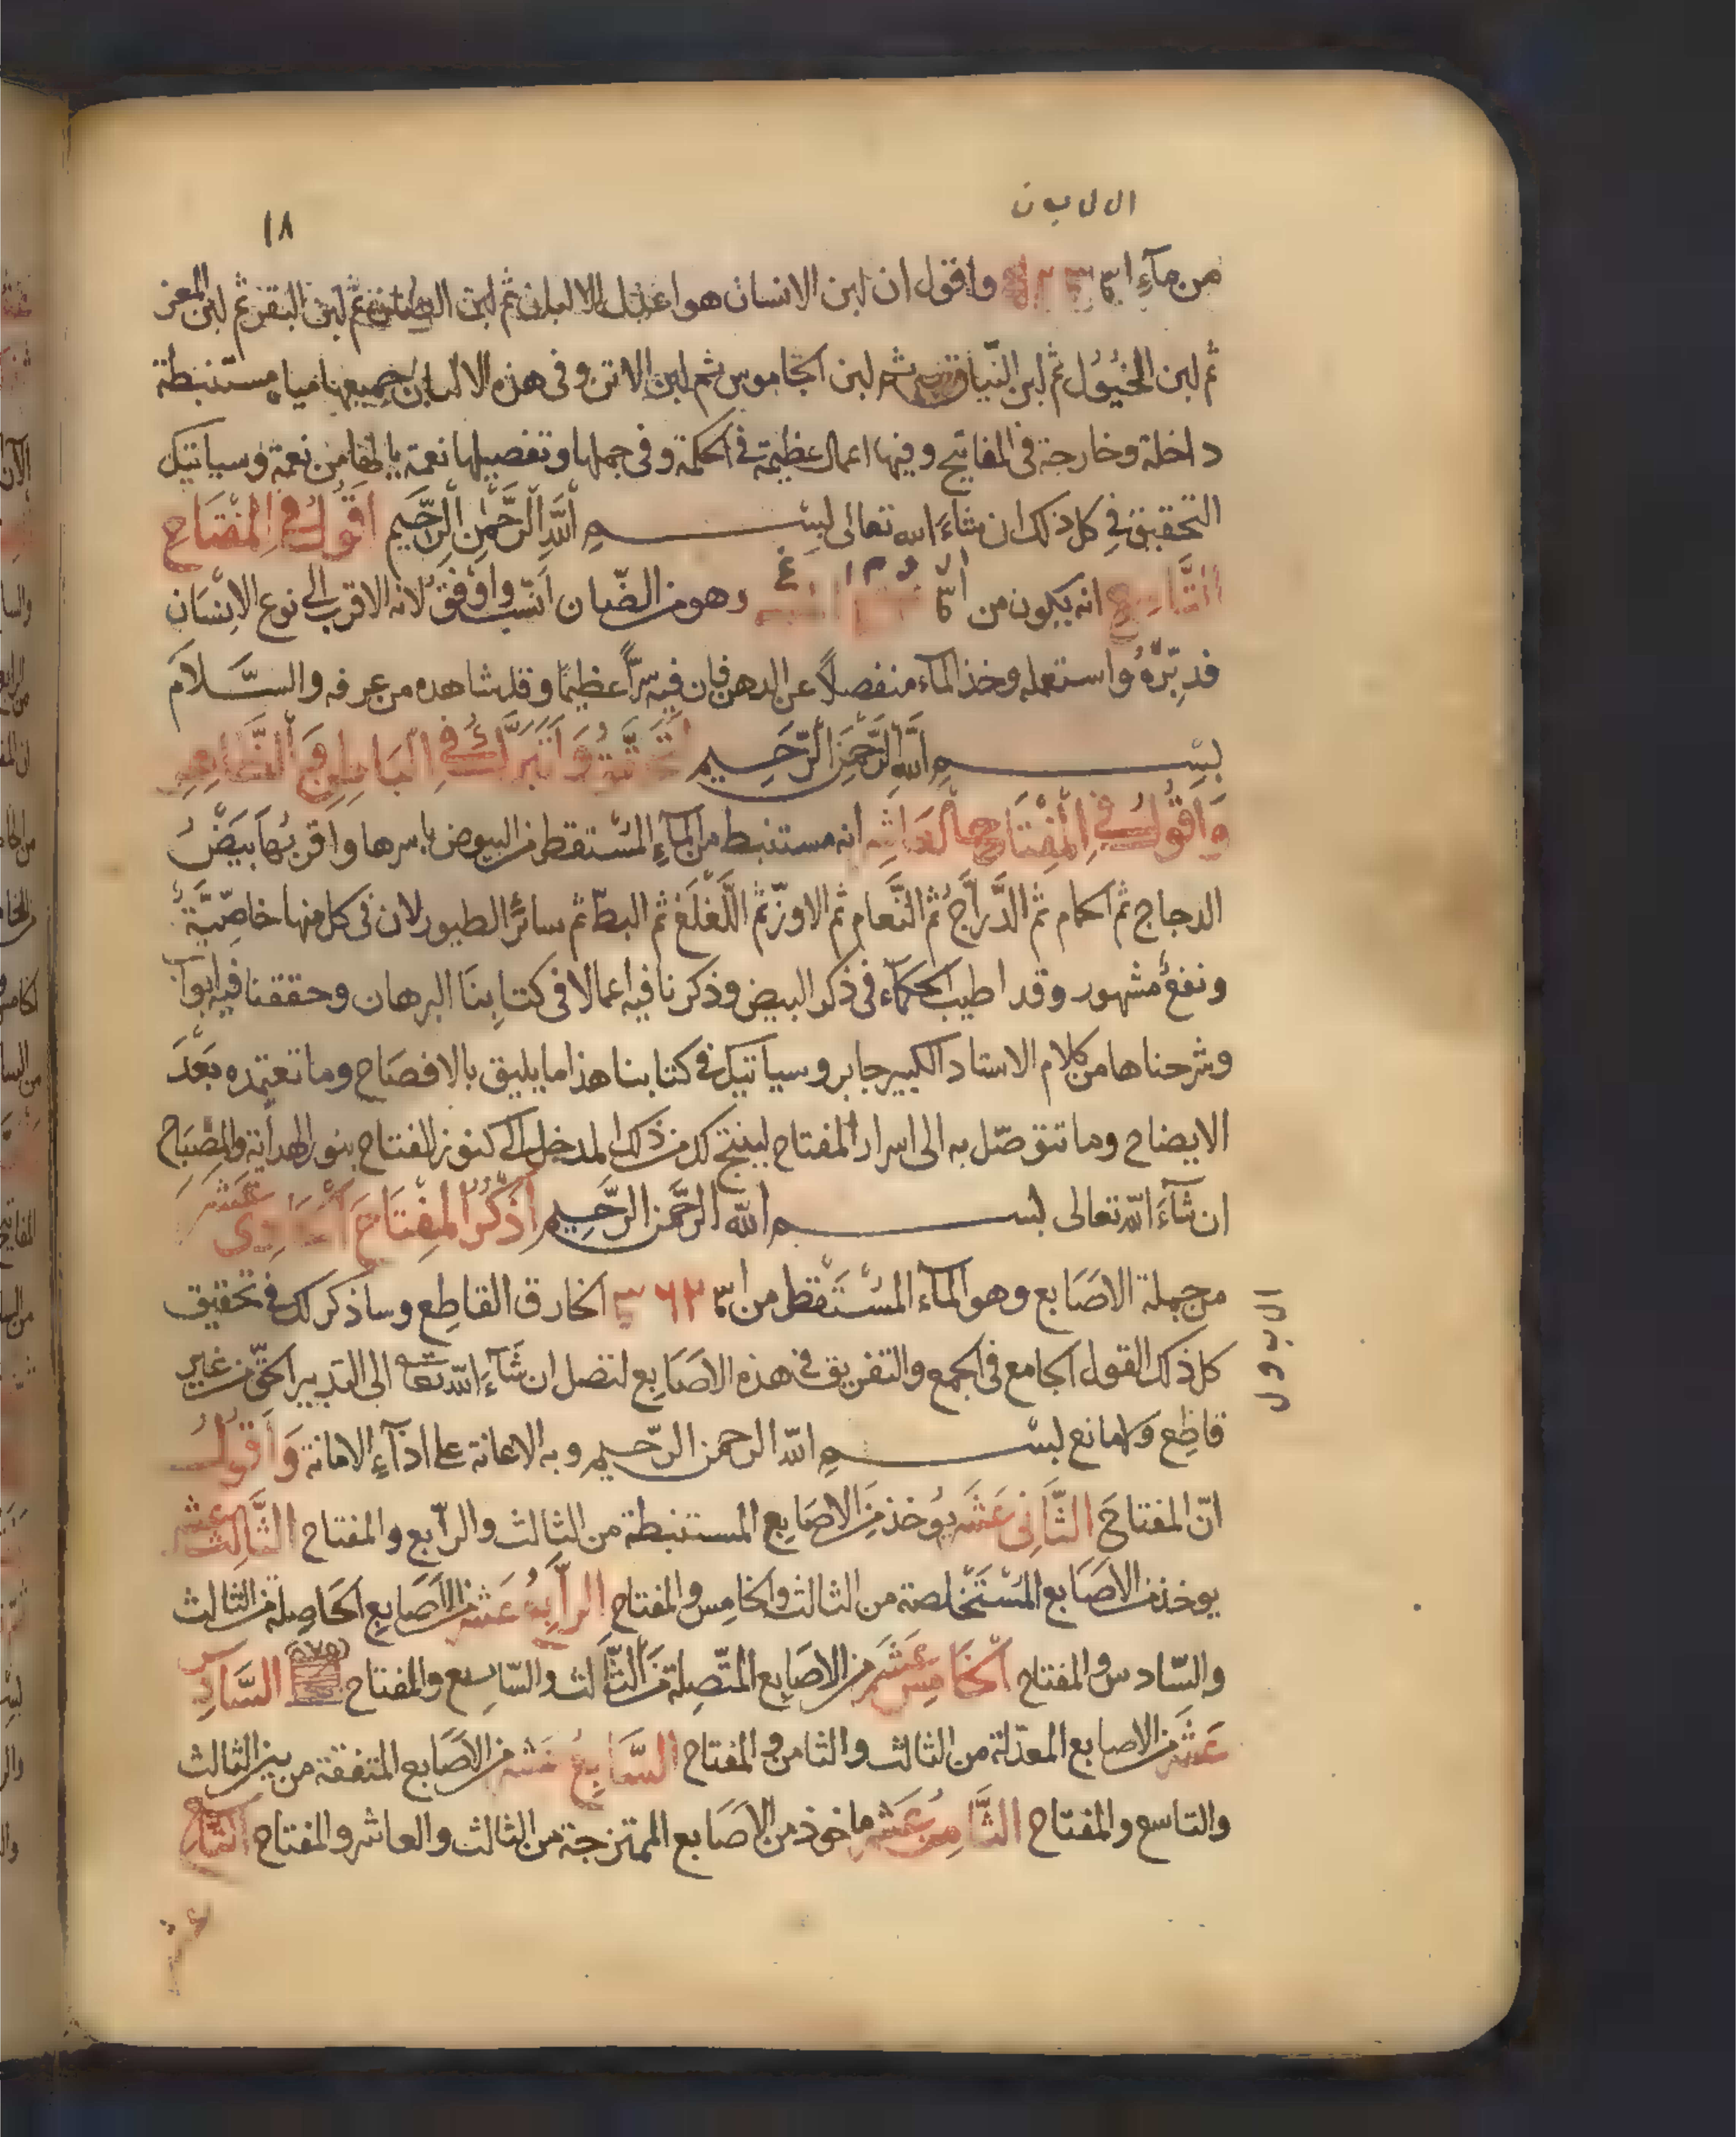 ال ل ب ن
١٨
من مآء واقول ان لبن الانسان هو اعدل الالبان ثم لبن ثم لبن البقر ثم لبن المعز
ثم لبن الخيول ثم لبن النياق ثم لبن الجاموس ثم لبن الاتن وفى هذه الالبان جميعها مياه مستنبطة
داخلة وخارجة فى المفاتيح وفيها اعمال عظيمة فى الحكمة وفى جملها وتفصيلها نعمة يا لها من نعمة وسياتيك
التحقيق فى كل ذلك ان شاءَ الله تعالى بسم اللَّهِ الرَّحْمٰنِ الرَّحِيم اقول فى المفتاح
التَّاسع انه يكون من وهو من الضّان انسب واوفق لانه الاقرب الى نوع الانسان
فدبّره واستعمله وخذ المآء منفصلاً عن الدهن فان فيه سرًّا عظيمًا وقد شاهده من عرفه والسَّلام
بسم اللَّه الرَّحمن الرَّحيم وَاَتَبَرَّكُ فى البَاطِن وَالظَّاهِر
وَاَقُولُ فى المِفْتَاح العَاشِر انه مستنبط من المآءِ المسْتقطر من البيوض باسرها واقربها بَيْضُ
الدجاج ثم الحمام ثم الدَّرَّاج ثم النَّعام ثم الاوزّ ثم اللَّغْلَغ ثم البطّ ثم سائر الطيور لان فى كل منها خاصّيَّةً
ونفعٌ مشهور وقد اطيب الحكمآء فى ذكر البيض وذكرنا فيه اعمالا فى كتابنا البرهان وحققنا فيه ابوابا
وشرحناها من كلام الاستاد الكبير جابر وسياتيك فى كتابنا هذا ما يليق بالافصَاح وما تعتمده بَعْدَ
الايضاح وما تتوصّل به الى اسرار المفتاح لينتج لك من ذلك المدخل الى كنوز المفتاح بنور الهداية والمصْبَاح
ان شآءَ اللّه تعالى بسم اللّه الرَّحمن الرَّحِيم اَذْكُر المِفتَاحَ الحَادِى عَشَر
من جملة الاصَابع وهو المآء المسْتَقْطر من ا ٦٢ الخارق القاطع وساذكر لك فى تحقيق
كل ذلك القول الجامع فى الجمع والتفريق فى هذه الاصَابع لتصل ان شَآءَ اللّه تعا الى التدبير الحقّ من غير
قاطِع ولا مانع بسم اللّه الرحمن الرّحيم وبه الاعانة على ادآءِ الامانة وَاَقول
انّ المفتاحَ الثَّانى عَشَر يوخذ من الاصَابع المستنبطة من الثالث والرابع والمفتاح الثَّالث عشر
يوخذ من الاصَابع المسْتَخلصة من الثالث والخامِس والمفتاح الرّابع عَشر من الاصَابع الحَاصِلة من الثالث
والسّادس والمفتاح الخَامِس عَشَر من الاصَابع المتّصِلة من الثّالث والسّابع والمفتاح السَّادِس
عَشَر من الاصابع المعدّلة من الثالث والثامن والمفتاح السَّابع عَشر من الاصَابع المتفقة من بين الثالث
والتاسع والمفتاح الثَّامِن عَشر ماخوذ من الاصَابع الممتزجة من الثالث والعاشر والمفتاح التَّاسع
عشر
ال ب و ل